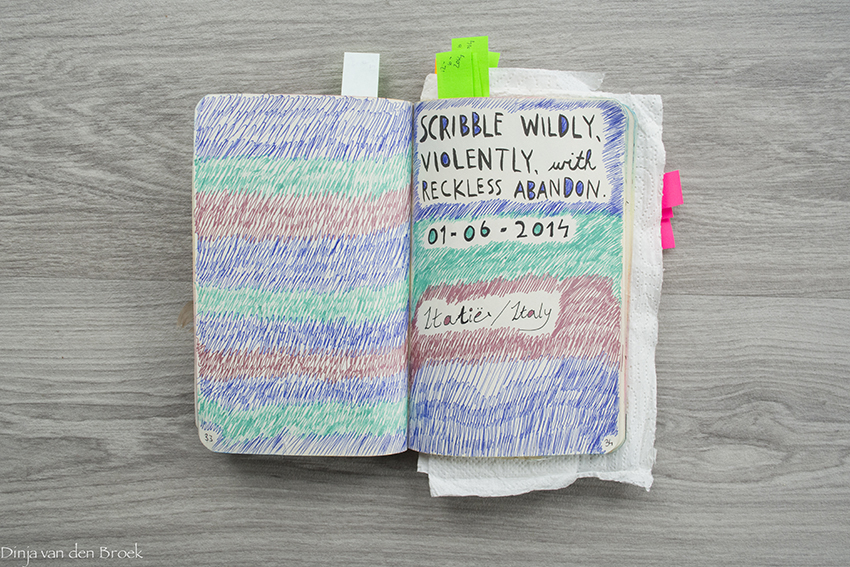 SCRIBBLE WILDLY,
VIOLENTLY, with
RECKLESS ABANDON.
01-06-2014
Italië/Italy
33
34
Dinja van den Broek